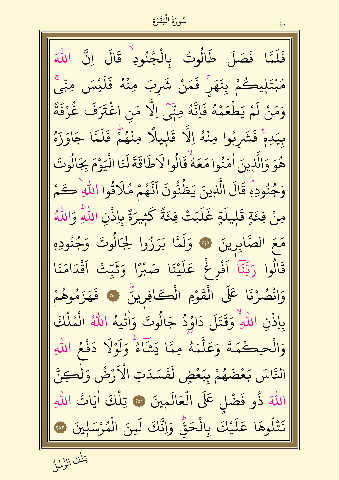 سُورَةُ الْبَقَرَةِ
٤٠
فَلَمَّا فَصَلَ طَالُوتُ بِالْجُنُودِ قَالَ اِنَّ اللّٰهَ
مُبْتَلِيكُمْ بِنَهَرٍ فَمَنْ شَرِبَ مِنْهُ فَلَيْسَ مِنّ۪ي
وَمَنْ لَمْ يَطْعَمْهُ فَاِنَّهُ مِنّ۪ي اِلَّا مَنِ اغْتَرَفَ غُرْفَةً
بِيَدِهِ فَشَرِبُوا مِنْهُ اِلَّا قَلِيلًا مِنْهُمْ فَلَمَّا جَاوَزَهُ
هُوَ وَالَّذِينَ اٰمَنُوا مَعَهُ قَالُوا لَا طَاقَةَ لَنَا الْيَوْمَ بِجَالُوتَ
وَجُنُودِهِ قَالَ الَّذِينَ يَظُنُّونَ اَنَّهُمْ مُلَاقُوا اللّٰهِ كَمْ
مِنْ فِئَةٍ قَلِيلَةٍ غَلَبَتْ فِئَةً كَثِيرَةً بِاِذْنِ اللّٰهِ وَاللّٰهُ
مَعَ الصَّابِرِينَ ٢٤٩ وَلَمَّا بَرَزُوا لِجَالُوتَ وَجُنُودِهِ
قَالُوا رَبَّنَا اَفْرِغْ عَلَيْنَا صَبْرًا وَثَبِّتْ اَقْدَامَنَا
وَانْصُرْنَا عَلَى الْقَوْمِ الْكَافِرِينَ ٢٥٠ فَهَزَمُوهُمْ
بِاِذْنِ اللّٰهِ وَقَتَلَ دَاوُ۫دُ جَالُوتَ وَاٰتٰيهُ اللّٰهُ الْمُلْكَ
وَالْحِكْمَةَ وَعَلَّمَهُ مِمَّا يَشَاءُ وَلَوْلَا دَفْعُ اللّٰهِ
النَّاسَ بَعْضَهُمْ بِبَعْضٍ لَفَسَدَتِ الْاَرْضُ وَلٰكِنَّ
اللّٰهَ ذُو فَضْلٍ عَلَى الْعَالَمِينَ ٢٥١ تِلْكَ اٰيَاتُ اللّٰهِ
نَتْلُوهَا عَلَيْكَ بِالْحَقِّ وَاِنَّكَ لَمِنَ الْمُرْسَلِينَ ٢٥٢
تِلْكَ الرُّسُلُ